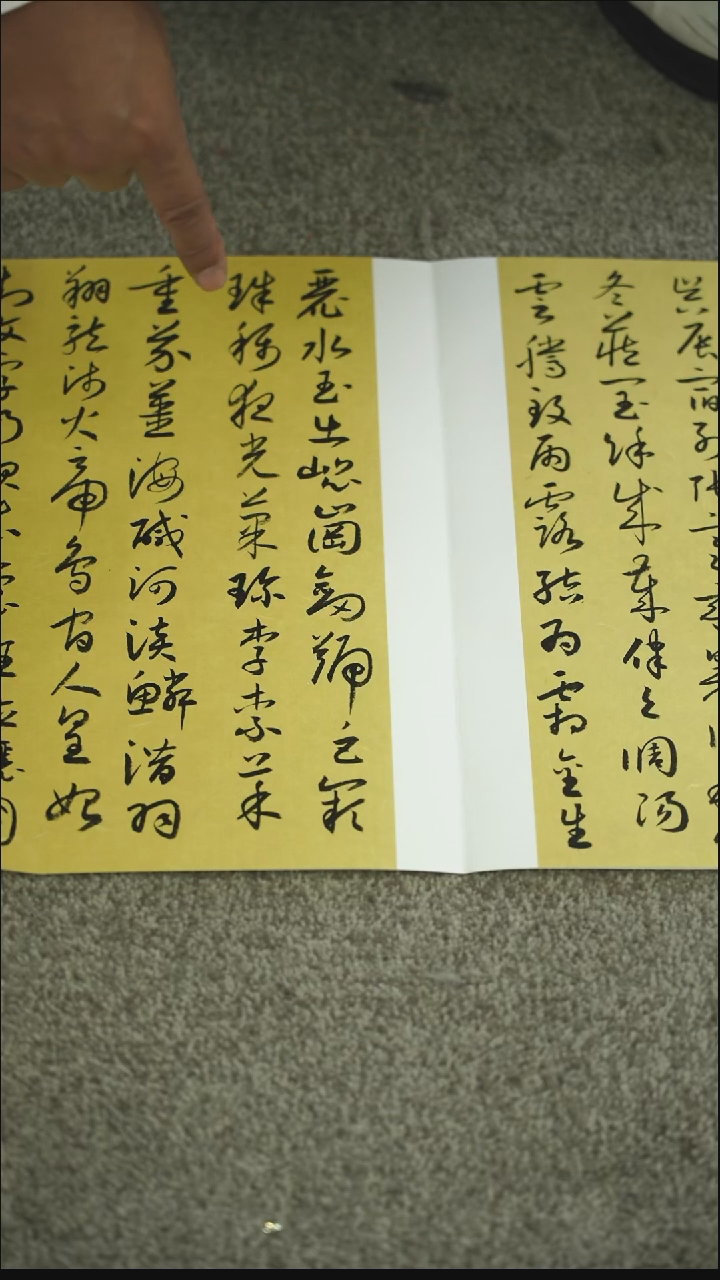 昃辰宿列張寒來暑往秋收
冬藏閏餘成歲律呂調陽
雲騰致雨露結為霜金生
麗水玉出崐崗劍號巨闕
珠稱夜光菓珍李柰菜
重芥薑海鹹河淡鱗潛羽
翔龍師火帝鳥官人皇始
制文字乃服衣裳推位讓國